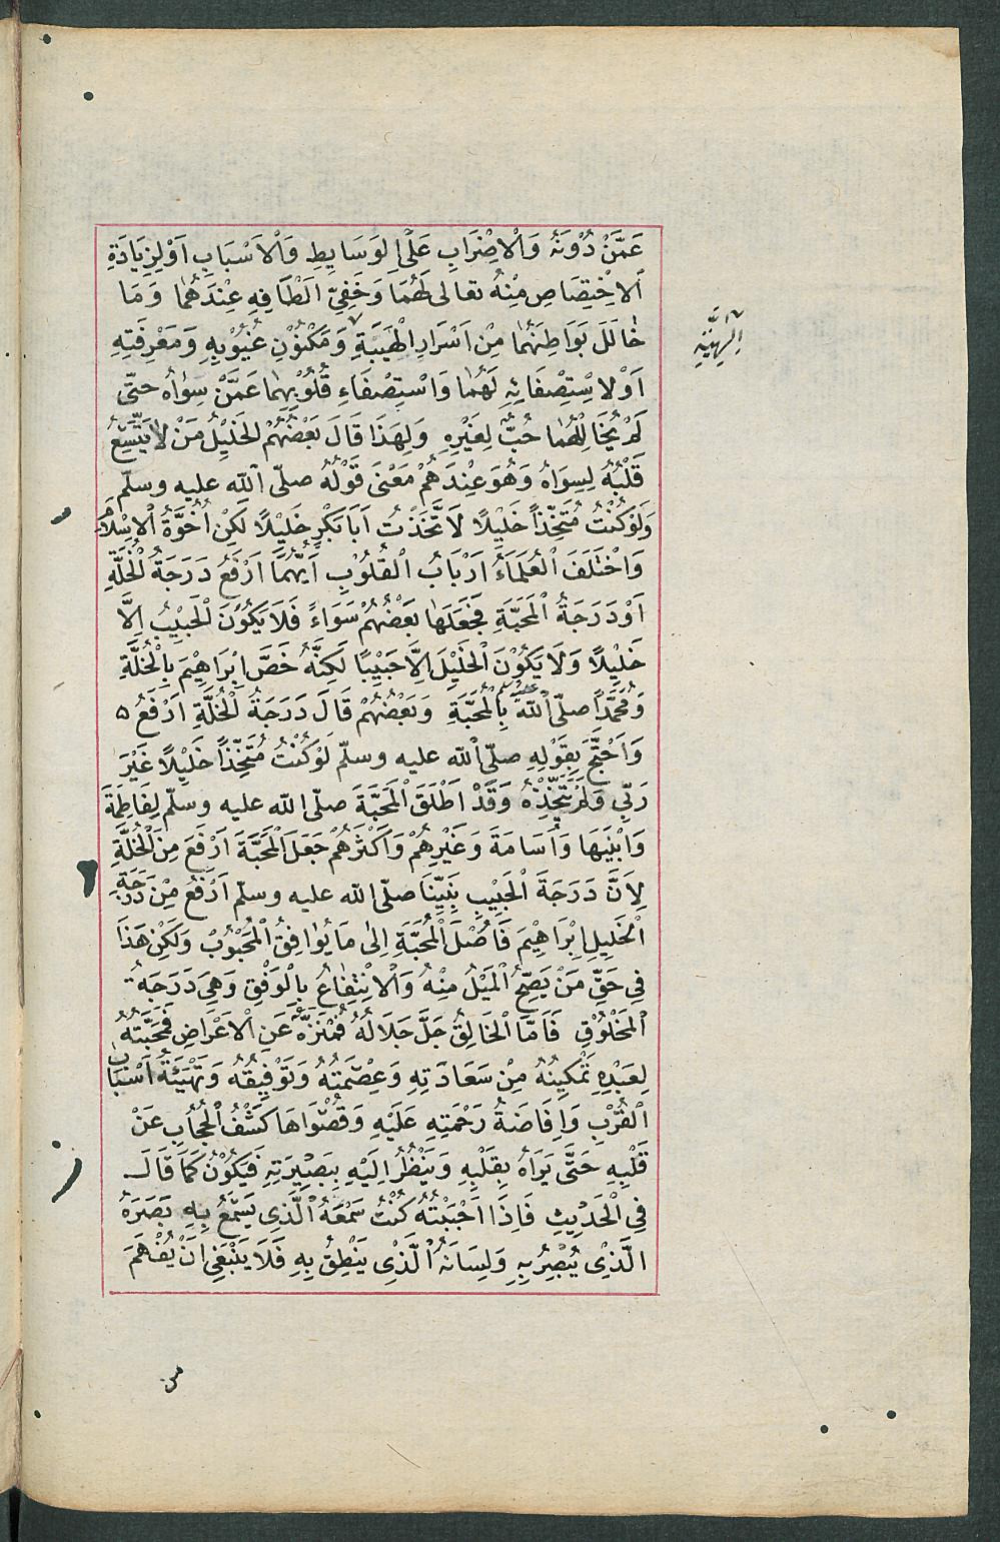 عَمَّنْ دُوْنَهُ وَالْاِضْرَابِ عَلَى الْوَسَايِطِ وَالْاَسْبَابِ اَوْلِزِيَادَةِ
اْلاِخْتِصَاصِ مِنْهُ تعالى لَهُمَا وَخَفِيِّ اَلْطَافِهِ عِنْدَهُمَا وَمَا
خَالَلَ بَوَاطِنَهُمَا مِنْ اَسْرَارِ الْهَيْبَةِ وَمَكْنُوْنِ غُيُوْبِهِ وَمَعْرِفَتِهِ
اَوْلاِسْتِصْفَائِهِ لَهُمَا وَاسْتِصْفَاءِ قُلُوْبِهِمَا عَمَّنْ سِوَاهُ حتّى
لَمْ يُخَالِلْهُمَا حُبٌّ لِغَيْرِهِ وَلِهَذَا قَالَ بَعْضُهُمْ الْخَلِيْلُ مَنْ لاَيَتَّسِعُ
قَلْبُهُ لِسِوَاهُ وَهُوَعِنْدَهُمْ مَعْنَى قَوْلُهُ صلّى الله عليه وسلّم
وَلَوْكُنْتُ مُتَّخِذاً خَلِيْلًا لَاتَّخَذْتُ اَبَا بَكْرٍ خَلِيْلًا لَكِنْ اُخُوَّةُ اْلاِسْلاَمِ
وَاخْتَلَفَ الْعُلَمَاءُ اَرْبَابُ الْقُلُوْبِ اَيُّهُمَا اَرْفَعُ دَرَجَةُ الْخُلَّةِ
اَوْدَرَجَةُ الْمَحَبَّةِ فَجَعَلَهَا بَعْضُهُمْ سَوَاءً فَلاَ يَكُوْنَ الْحَبِيْبُ اِلَّا
خَلِيْلاً وَلَا يَكُوْنَ الْخَلِيْلَ اِلَّا حَبِيْبًا لَكِنَّهُ خَصَّ اِبْرَاهِيْمَ بِالْخُلَّةِ
وَمُحَمَّداً صلّى الله بِالْمَحَبَّةِ وَبَعْضُهُمْ قَالَ دَرَجَةُ الْخُلَّةِ اَرْفَعُ ٥
وَاَحْتَجَّ بِقَوْلِهِ صلّى الله عليه وسلّم لَوْكُنْتُ مُتَّخِذاً خَلِيْلًا غَيْرَ
رَبِّى وَلَمْ يَتَّخِذْهُ وَقَدْ اَطْلَقَ الْمَحَبَّةَ صلّى الله عليه وسلّم لِفَاطِمَةَ
وَابْنَيْهَا وَاُسَامَةَ وَغَيْرِهِمْ وَاَكْثَرُهُمْ جَعَلَ الْمَحَبَّةَ اَرْفَعَ مِنَ الْخُلَّةِ
لِاَنَّ دَرَجَةَ الْحَبِيْبِ نَبِيِّنَا صلّى الله عليه وسلّم اَرْفَعُ مِنْ دَرَجَةِ
الْخَلِيلِ اِبْرَاهِيْمَ فَاَصْلُ الْمُحَبَّةِ اِلٰى مَا يُوَافِقُ الْمُحْبُوْبُ وَلَكِنْ هَذَا
فِى حَقِّ مَنْ يَصِحُّ الْمَيْلُ مِنْهُ وَاْلاِنْتِفَاعُ بِالْوَفْقِ وَهِيَ دَرَجَةُ
الْمَخْلُوْقِ فَاَمَّا الْخَالِقُ جَلَّ جَلَالُهُ فَمُنَزَّهٌ عَنِ اْلاَعْرَاضِ فَمَحَبَّتُهُ
لِعَبْدِهِ تَمْكِينُهُ مِنْ سَعَادَتِهِ وَعِصْمَتُهُ وَتَوْفِيقُهُ وَتَهْيِئَةُ اَسْبَابُ
الْقُرْبِ وَاِفَاضَةُ رَحْمَتِهِ عَلَيْهِ وَقُصْوَاهَا كَشْفُ الْحُجُابِ عَنْ
قَلْبِهِ حَتَّى يَرَاهُ بِقَلْبِهِ وَيَنْظُرُ اِلَيْهِ بِبَصِيْرَتِهِ فَيَكُوْنُ كَمَا قَالَ
فِى الْحَدِيْثِ فَاِذَا اَحْبَبْتُهُ كُنْتُ سَمْعَهُ الَّذِى يَسْمَعُ بِهِ بَصَرَهُ
الَّذِىْ يُبْصِرُ بِهِ وَلِسَانَهُ الَّذِىْ يَنْطِقُ بِهِ فَلَا يَنْبَغِى اَنْ يُفْهَمَ